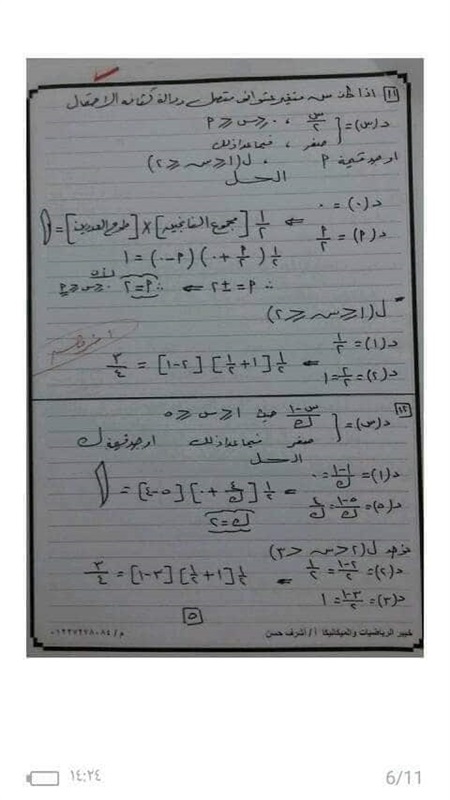 ١١ اذا كان س متغير عشوائى متصل ودالة كثافة الاحتمال
د(س) = { س/٢ ، ٠ ≤ س ≤ P
صفر ، فيما عدا ذلك
اوجد قيمة P ، ل(١ ≤ س ≤ ٢)
الحـــل
د(٠) = ٠
د(P) = P/٢ ⇐ ١/٢ [مجموع القاعدتين] × [طرح العددين] = ١
١/٢ (P/٢ + ٠) (P - ٠) = ١
∴ P = ±٢ ⇐ ∴ P = ٢ ٠ ≤ س ≤ P
ل(١ ≤ س ≤ ٢)
د(١) = ١/٢
د(٢) = ٢/٢ = ١ ⇐ ١/٢ [١ + ١/٢] [٢ - ١] = ٣/٤
١٢ د(س) = { س-١/ك حيث ١ ≤ س ≤ ٥
صفر فيما عدا ذلك اوجد قيمة ك
الحـــل
د(١) = ١-١/ك = ٠
د(٥) = ٥-١/ك = ٤/ك ⇐ ١/٢ [٤/ك + ٠] [٥-٤] = ١
ك = ٢
ل(٢ < س < ٣)
د(٢) = ٢-١/٢ = ١/٢ ١/٢ [١ + ١/٢] [٣-١] = ٣/٤
د(٣) = ٣-١/٢ = ١
٥
خبير الرياضيات والميكانيكا أ / أشرف حسن م / ٠١٢٢٧٢٢٨٠٨٤
١٤:٢٤ 6/11